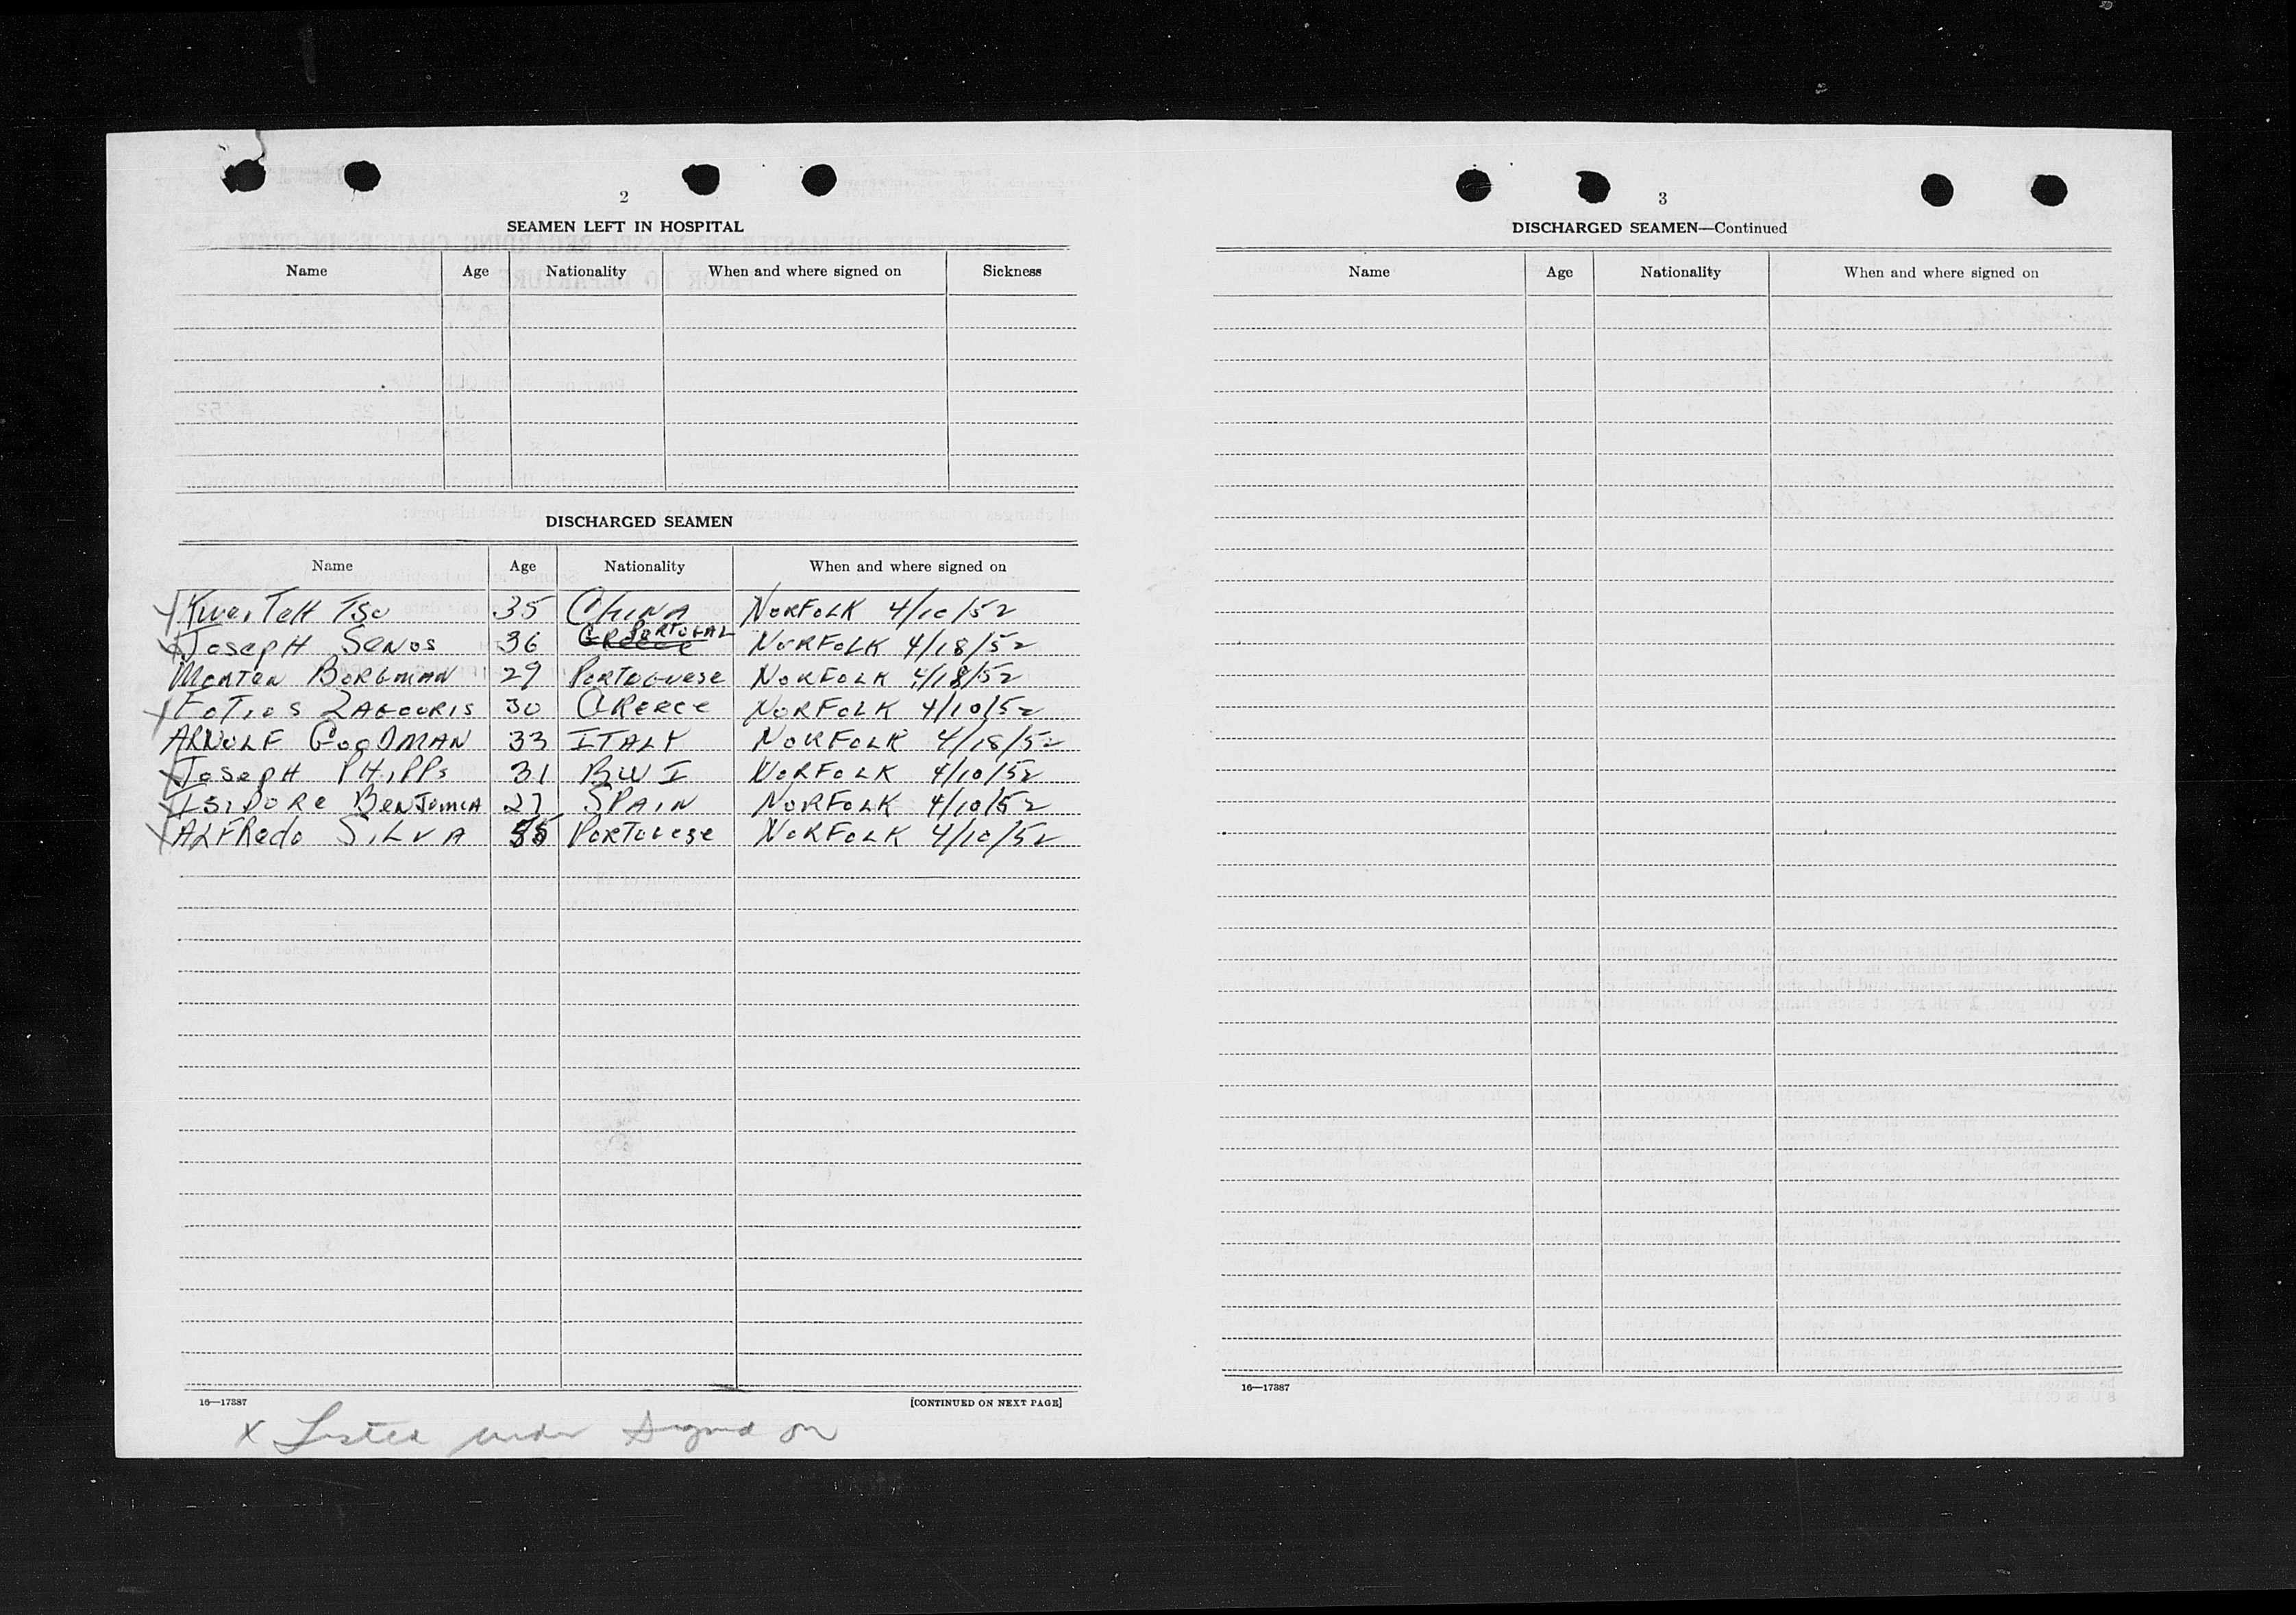 2
SEAMEN LEFT IN HOSPITAL
Name Age Nationality When and where signed on Sickness
DISCHARGED SEAMEN
Name Age Nationality When and where signed on
X Kwei Teh Tso 35 China NORFOLK 4/10/52
X Joseph Senos 36 Greece PORTUGAL NORFOLK 4/18/52
Morten Borgman 29 Portuguese NORFOLK 4/18/52
X Fotios Zagouris 30 Greece NORFOLK 4/10/52
ARNOLF GOODMAN 33 ITALY NORFOLK 4/18/52
X Joseph PHIPPS 31 BWI NORFOLK 4/10/52
X ISIDORE 27 SPAIN NORFOLK 4/10/52
X ALFRedo SILVA Portugese NORFOLK 4/10/52
16—17387 [CONTINUED ON NEXT PAGE]
X Listed under Signed on
3
DISCHARGED SEAMEN—Continued
Name Age Nationality When and where signed on
16—17387